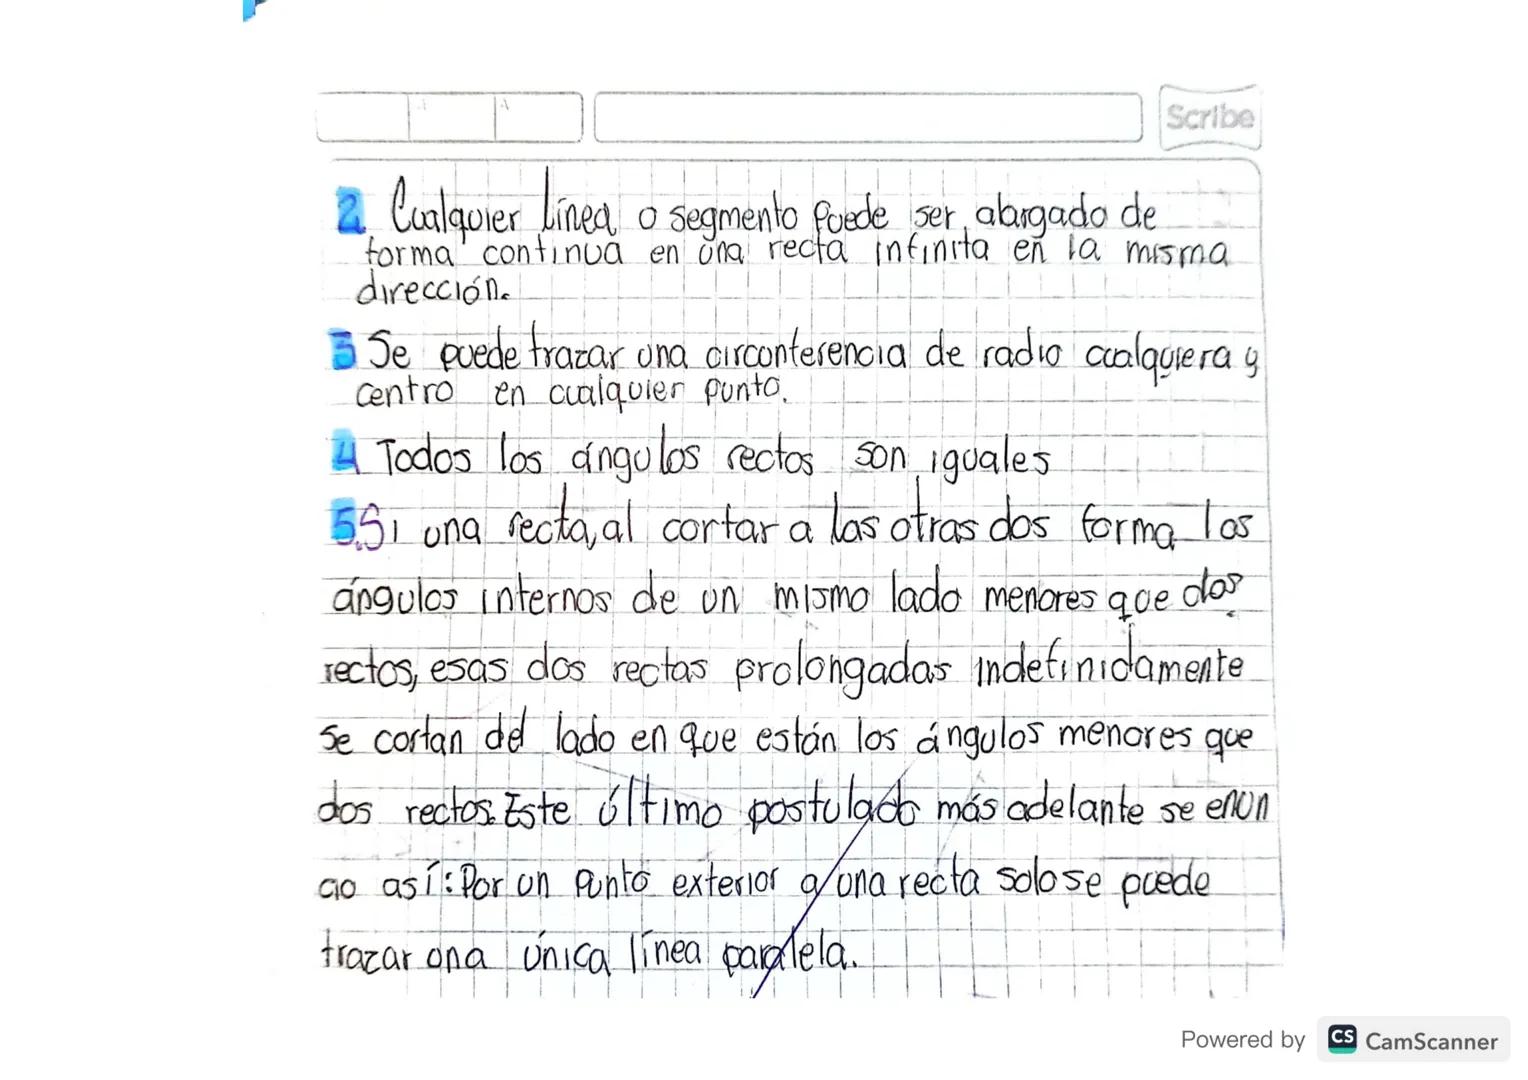 Scribe
2 Cualquier línea o segmento puede ser alargado de
forma continua en una recta infinita en la misma
dirección.
3 Se puede trazar una circunferencia de radio cualquiera y
centro en cualquier punto.
4 Todos los ángulos rectos son iguales
5. Si una recta, al cortar a las otras dos forma los
ángulos internos de un mismo lado menores que dos
rectos, esas dos rectas prolongadas indefinidamente
se cortan del lado en que están los ángulos menores que
dos rectos. Este último postulado más adelante se enun
cio así: Por un punto exterior a una recta solo se puede
trazar una única línea paralela.
Powered by CS CamScanner